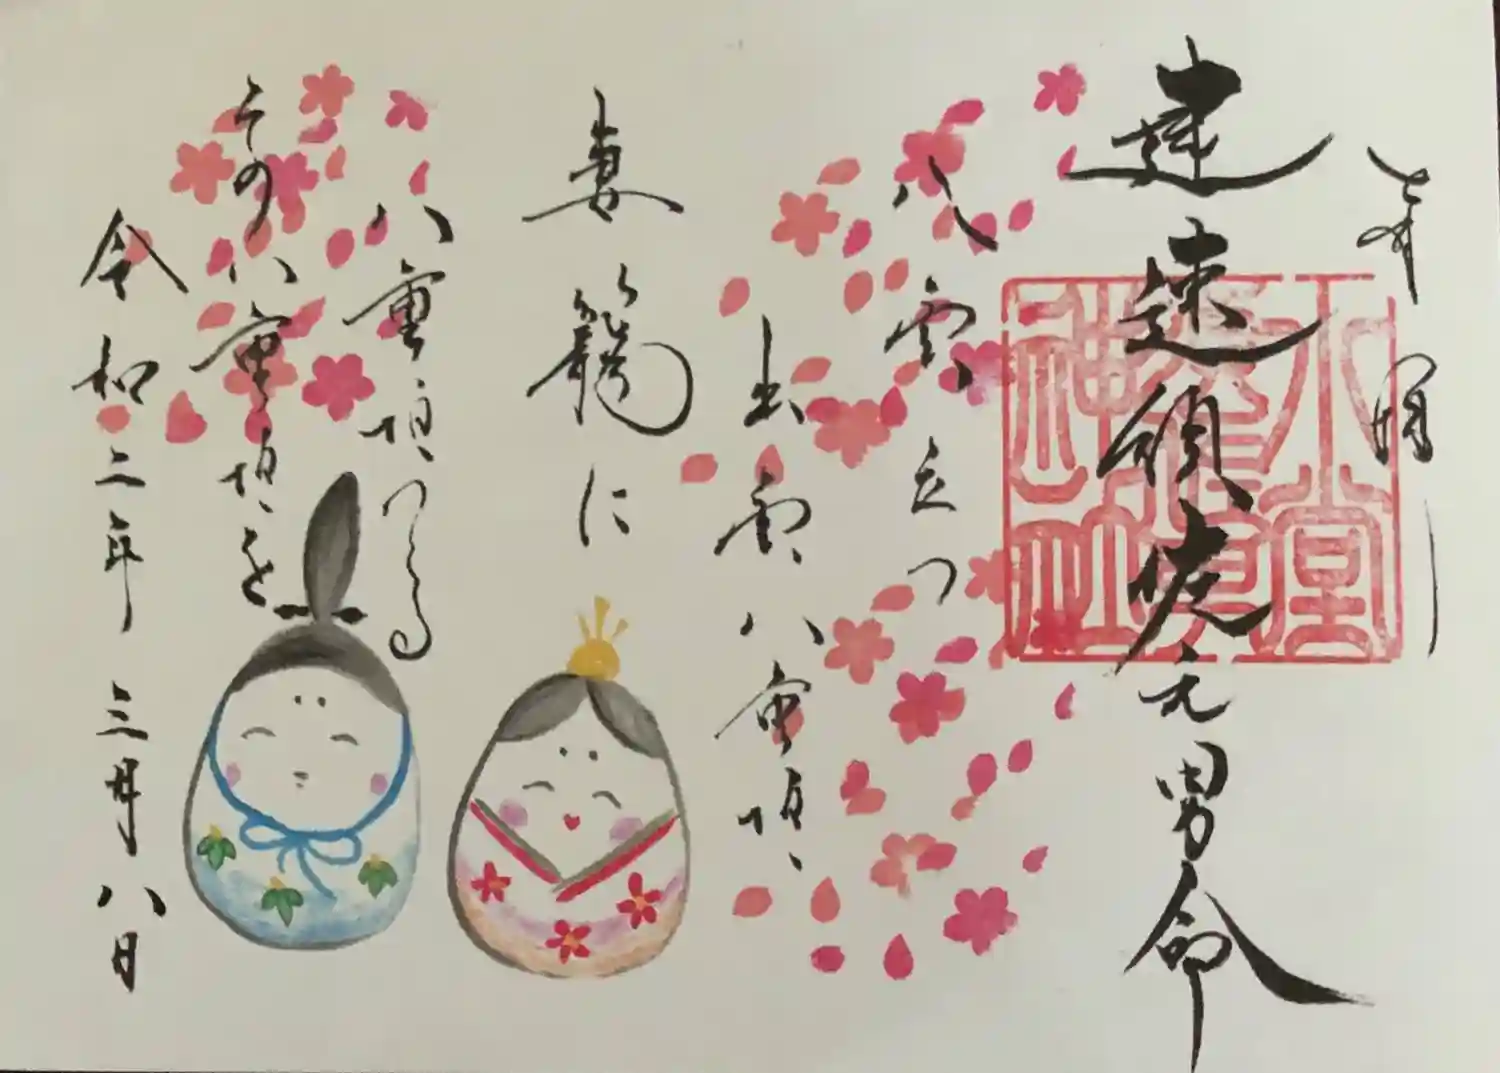 建速須佐之男命
八雲立つ
出雲八重垣、
妻籠に
八重垣つくる
その八重垣を
令和二年 三月八日
神社